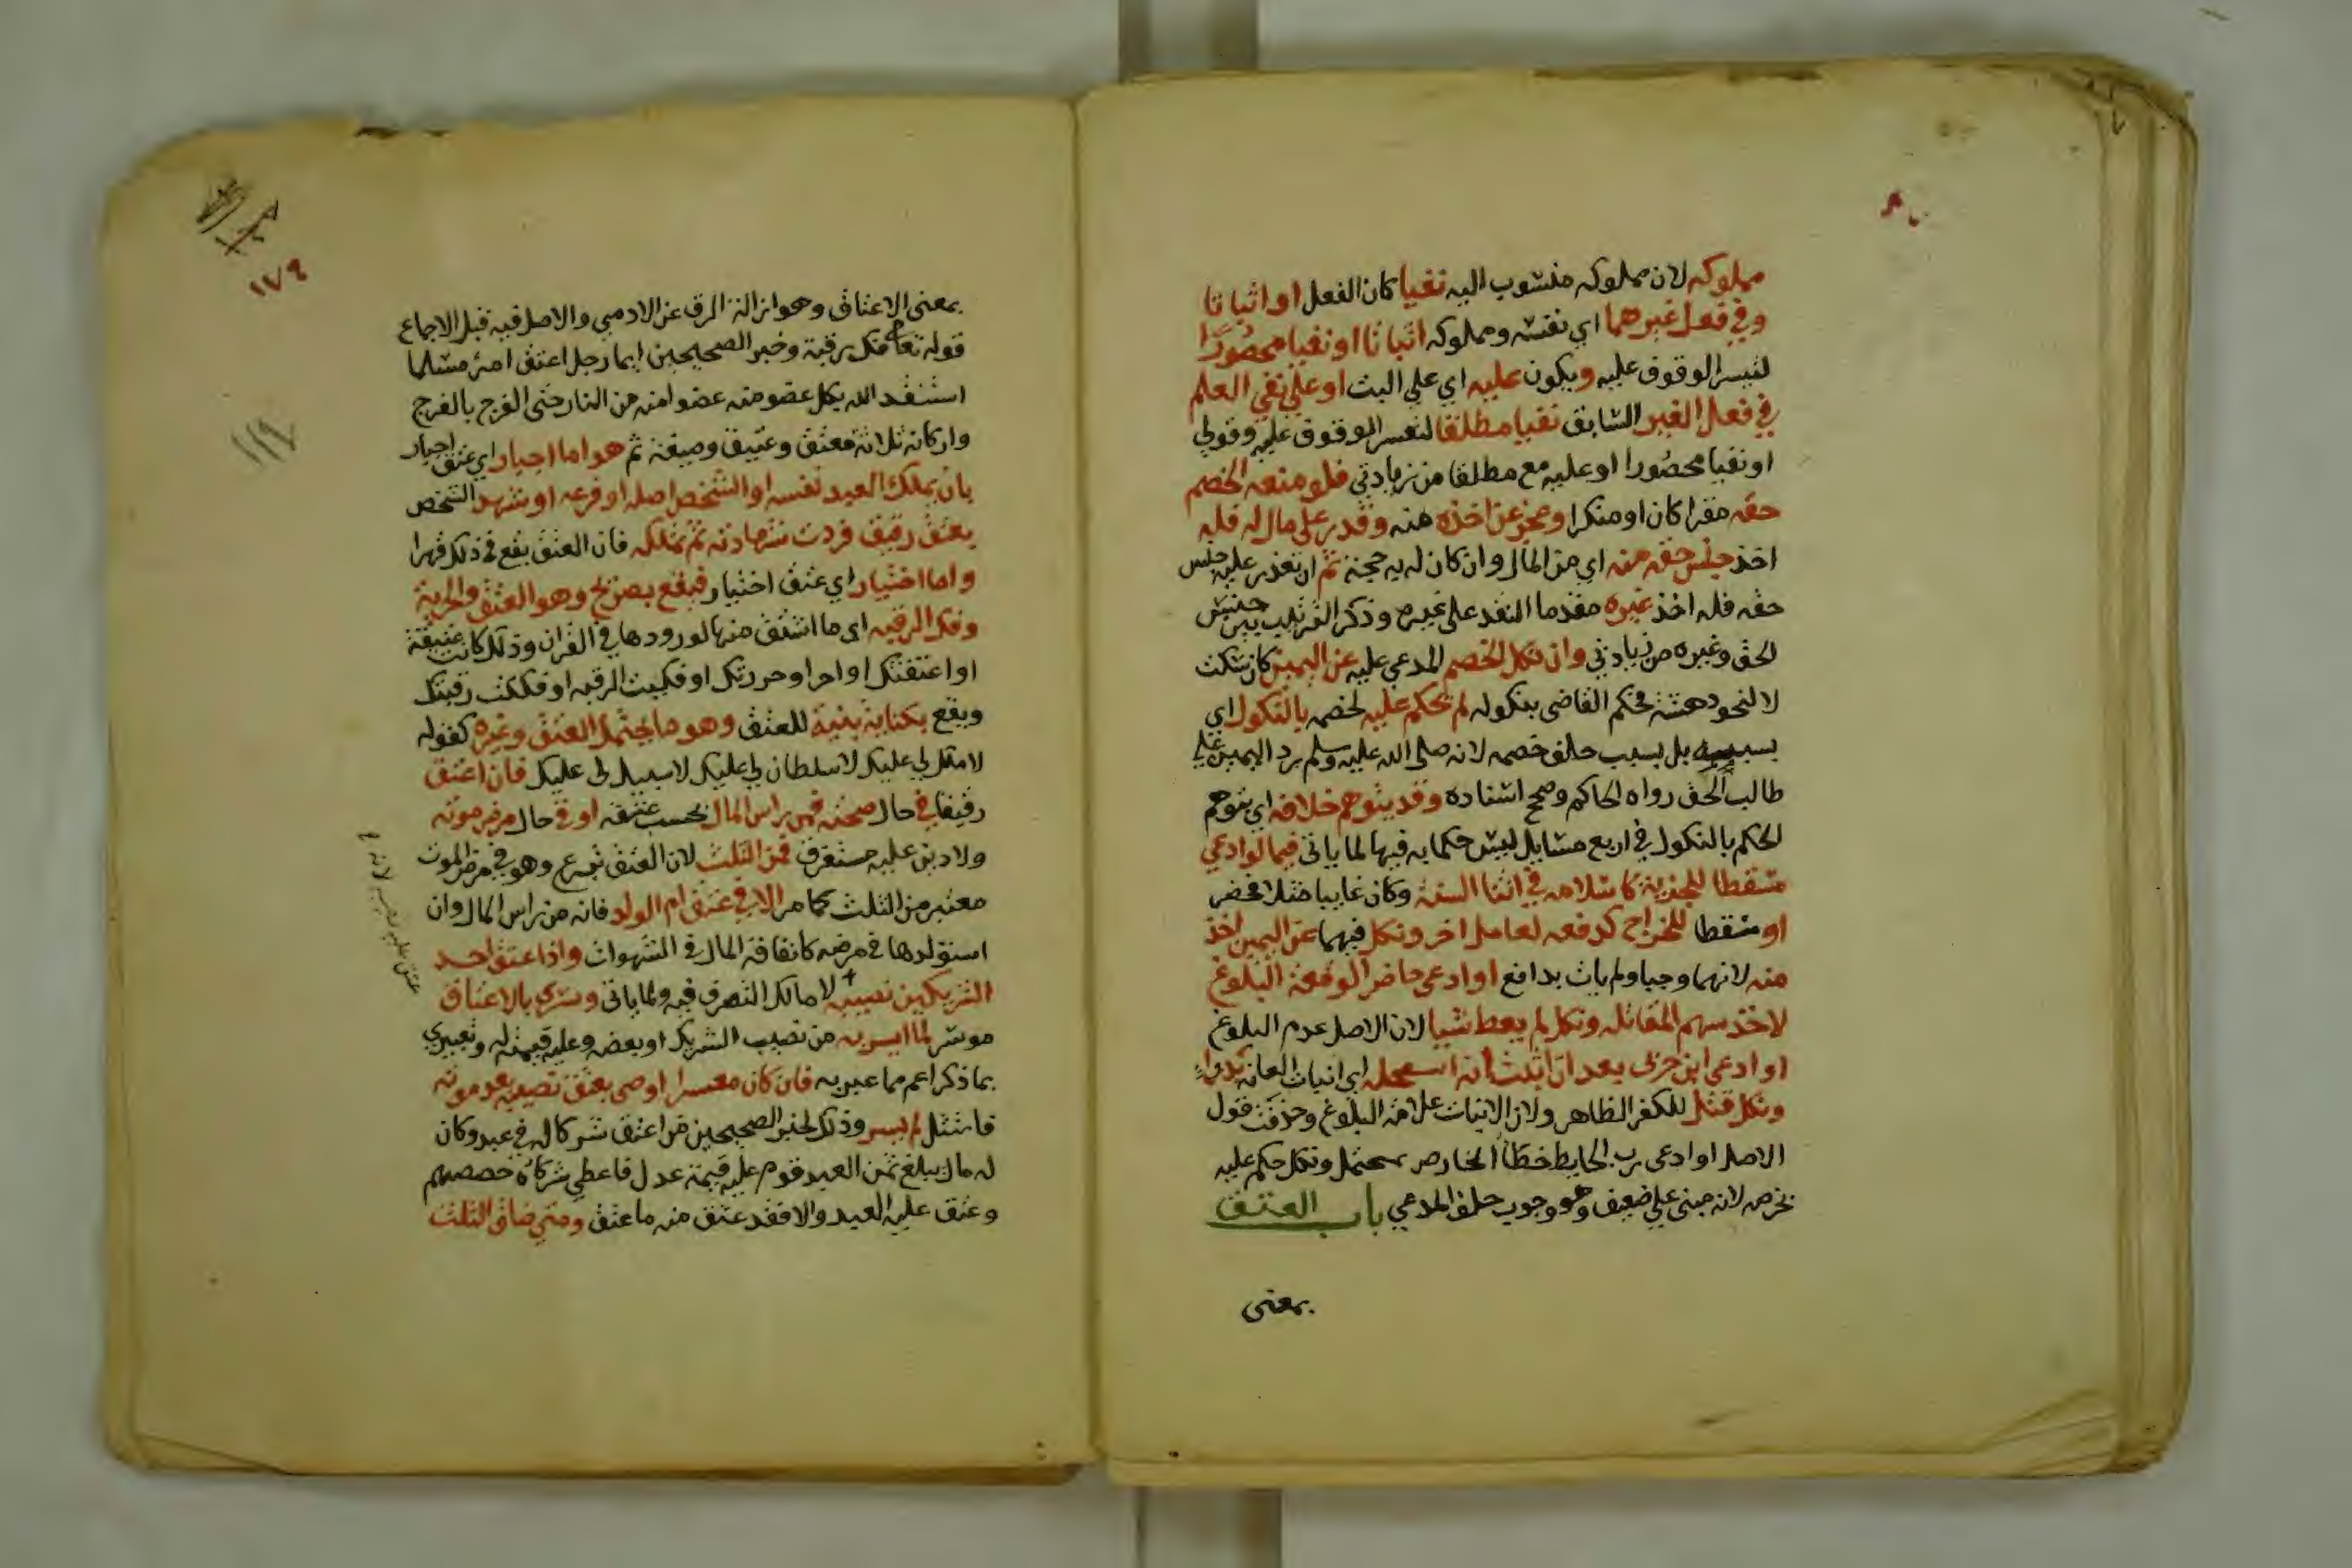 مملوكه لان مملوكه منسوب اليه نفيا كان الفعل او اثباتا
وفي فعل غيرهما اي نفسه ومملوكه اثباتا او نفيا محصورا
لتيسر الوقوف عليه ويكون عليه اي علي البت او علي نفي العلم
في فعل الغير السابق نفيا مطلقا لتعسر الوقوف عليه وقولي
او نفيا محصورا او عليه مع مطلقا من زيادتي فلو منعه الخصم
حقه مقرا كان او منكرا وعجز عن اخذه منه وقدر علي مال له فله
اخذ جنس حقه منه اي من المال وان كان له به حجة ثم ان تعذر عليه جنس
حقه فله اخذ غيره مقدما النقد على غيره وذكر الترتيب بين جنس
الحق وغيره من زيادتي وان نكل الخصم المدعي عليه عن اليمين كان سكت
لا لنحو دهشة فحكم القاضي بنكوله لم يحكم عليه لخصمه بالنكول اي
بسببه بل بسبب حلف خصمه لانه صلى الله عليه وسلم رد اليمين علي
طالب الحق رواه الحاكم وصحح اسناده وقد يتوهم خلافه اي يتوهم
الحكم بالنكول في اربع مسايل ليس حكما به فيها لما ياتى فيما لو ادعي
مسقطا للجزية كاسلامه في اثنا السنة وكان غايبا مثلا فحضر
او مسقطا للخراج كدفعه لعامل اخر ونكل فيهما عن اليمين اخذ
منه لانهما وجبا ولم يات بدافع او ادعى حاضر الوقعة البلوغ
لاخذ سهم المقاتله ونكل لم يعط شيا لان الاصل عدم البلوغ
او ادعى ابن حربي بعد ان انبت انه استعجله اي انبات العانه بدواء
ونكل قتل للكفر الظاهر ولان الانبات علامة البلوغ وحذفت قول
الاصل او ادعى رب الحايط خطأ الخارص بمحتمل ونكل حكم عليه
بخرصه لانه مبنى علي ضعيف وهو وجوب حلف المدعي باب العتق
بمعنى
١٧٩
بمعنى الاعتاق وهو ازالة الرق عن الادمي والاصل فيه قبل الاجماع
قوله تعالى فك رقبة وخبر الصحيحين ايما رجل اعتق امرء مسلما
استنقذ الله بكل عضو منه عضوا منه من النار حتى الفرج بالفرج
واركانه ثلاثة معتق وعتيق وصيغة ثم هو اما اجبار اي عتق اجبار
بان يملك العبد نفسه او الشخص اصله او فرعه او شهد الشخص
بعتق رقيق فردت شهادته ثم تملكه فان العتق يقع في ذلك قهرا
واما اختيار اي عتق اختيار فيقع بصريح وهو العتق والحرية
وفك الرقبه اى ما اشتق منها لورودها في القران وذلك كانت عتيقة
او اعتقتك او احر او حررتك او فكيت الرقبه او فككت رقبتك
ويقع بكناية بنية للعتق وهو ما يحتمل العتق وغيره كقوله
لا ملك لي عليك لا سلطان لي عليك لا سبيل لي عليك فان اعتق
رقيقا في حال صحته فمن راس المال بحسب عتقه او في حال مرض موته
ولا دين عليه مستغرق فمن الثلث لان العتق تبرع وهو في مرض الموت
معتبر من الثلث كما مر الا في عتق ام الولد فانه من راس المال وان
استولدها في مرضه كانفاقه المال في الشهوات واذا عتق احد
الشريكين نصيبه لا مالك التصرف فيه ولما ياتى وسرى بالاعتاق
موسر لما ايسر به من نصيب الشريك او بعضه وعليه قيمته له وتعبيري
بما ذكر اعم مما عبر به فان كان معسرا او صى بعتق نصيبه بعد موته
فامتثل لم يسر وذلك لخبر الصحيحين من اعتق شركا له في عبد وكان
له مال يبلغ ثمن العبد قوم عليه قيمة عدل فاعطي شركاؤه حصصهم
وعتق عليه العبد والا فقد عتق منه ما عتق ومتى ضاق الثلث